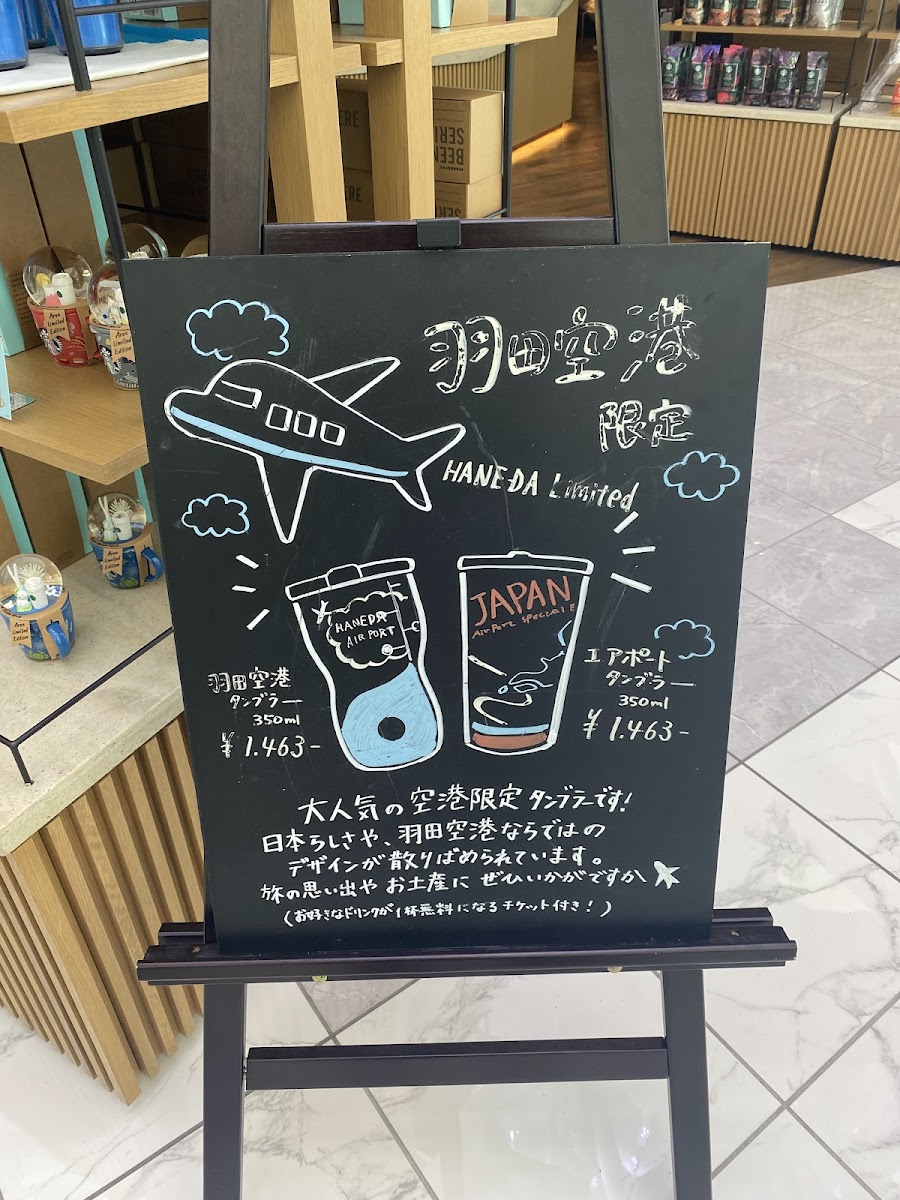 羽田空港
限定
HANEDA Limited
HANEDA
AIRPORT
JAPAN
羽田空港
タンブラー
350ml
¥ 1.463-
エアポート
タンブラー
350ml
¥ 1.463-
大人気の空港限定タンブラーです!
日本らしさや、羽田空港ならではの
デザインが散りばめられています。
旅の思い出や お土産に ぜひいかがですか
(お好きなドリンクが1杯無料になるチケット付き!)
BEEN
SERI
ERE
Area
Limited
Edition
Area
Limited
Edition
Area
Limited
Edition
Area
Limited
Edition